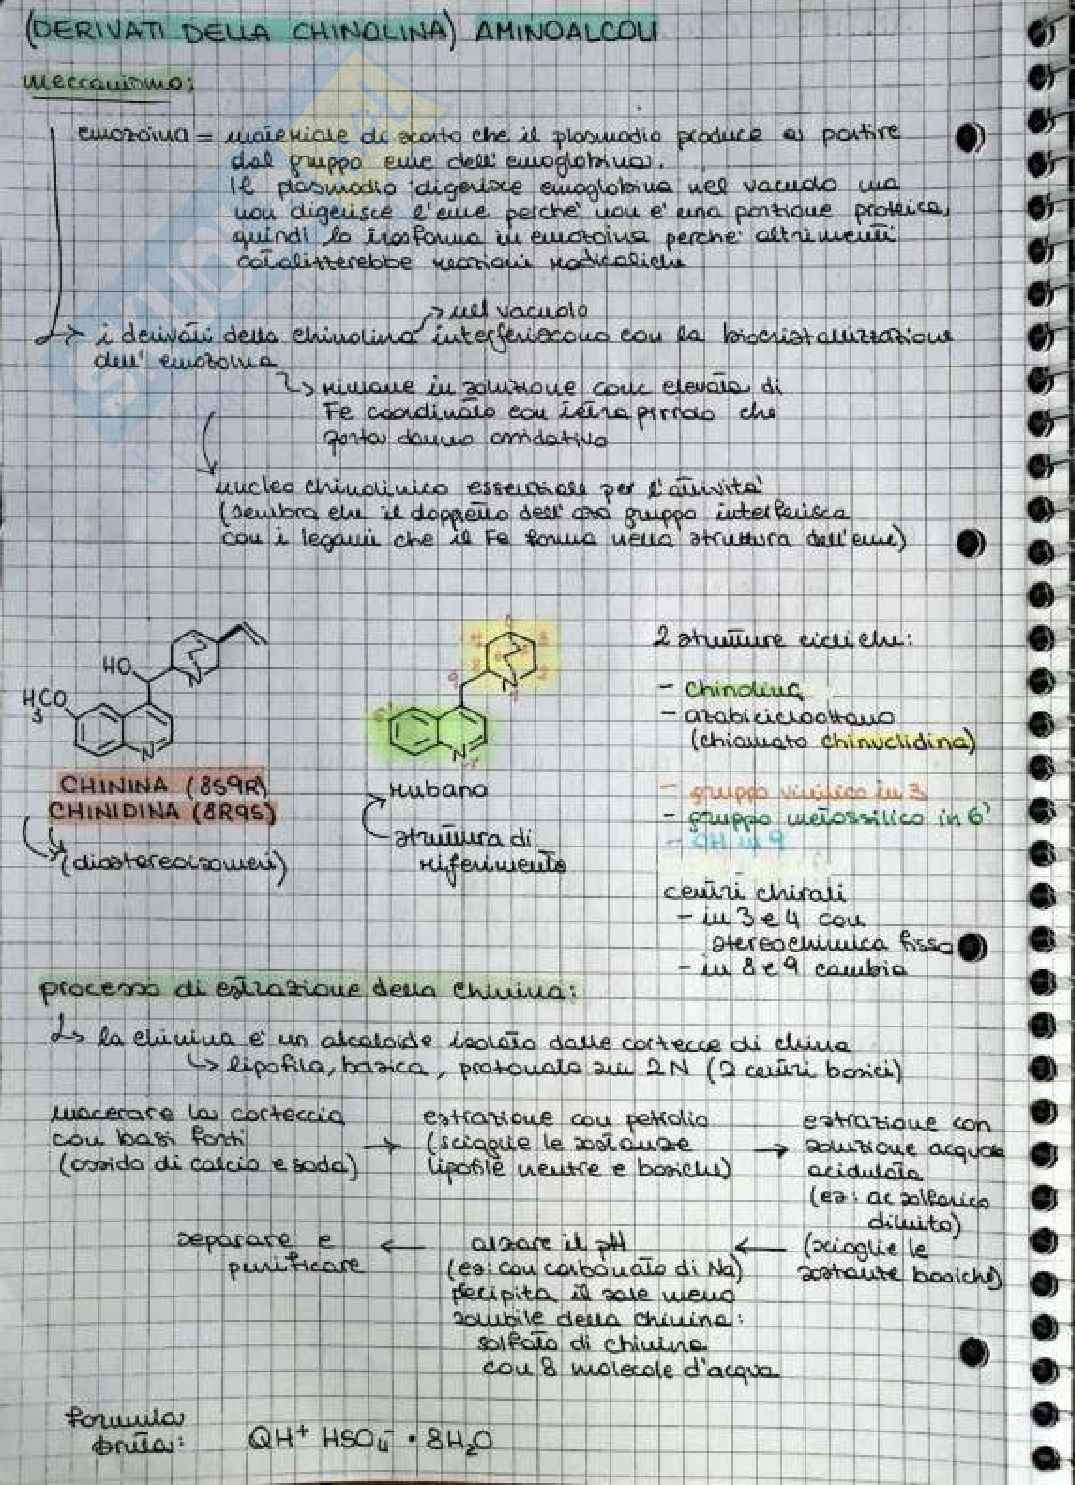 (DERIVATI DELLA CHINOLINA) AMINOALCOLI
meccanismo:
emozoina = materiale di scarto che il plasmodio produce a partire
dal gruppo eme dell'emoglobina.
Il plasmodio digerisce emoglobina nel vacuolo ma
non digerisce l'eme perché non è una porzione proteica,
quindi lo trasforma in emozoina perché altrimenti
catalizzerebbe reazioni radicaliche
nel vacuolo
i derivati della chinolina interferiscono con la biocristallizzazione
dell'emozoina
rimane in soluzione conc elevata di
Fe coordinato con tetra pirrolo che
porta danno ossidativo
nucleo chinolinico essenziale per l'attività
(sembra che il doppietto dell' gruppo interferisca
con i legami che il Fe forma nella struttura dell'eme)
HO
N
H3CO
N
CHININA (8S9R)
CHINIDINA (8R9S)
(diastereoisomeri)
4 5 3
8 6 7 2
9 N 1
6'
N 1'
rubano
struttura di
riferimento
2 strutture cicliche:
- chinolina
- azabicicloottano
(chiamato chinuclidina)
- gruppo vinilico in 3
- gruppo metossilico in 6'
- OH in 9
centri chirali
- in 3 e 4 con
stereochimica fissa
- in 8 e 9 cambia
processo di estrazione della chinina:
la chinina è un alcaloide isolato dalle cortecce di china
lipofila, basica, protonata su 2N (2 centri basici)
macerare la corteccia
con basi forti
(ossido di calcio e soda)
estrazione con petrolio
(scioglie le sostanze
lipofile neutre e basiche)
estrazione con
soluzione acquosa
acidulata
(es: ac solforico
diluito)
(scioglie le
sostanze basiche)
alzare il pH
(es: con carbonato di Na)
precipita il sale meno
solubile della chinina:
solfato di chinina
con 8 molecole d'acqua
separare e
purificare
formula
bruta:
QH+ HSO4- • 8H2O